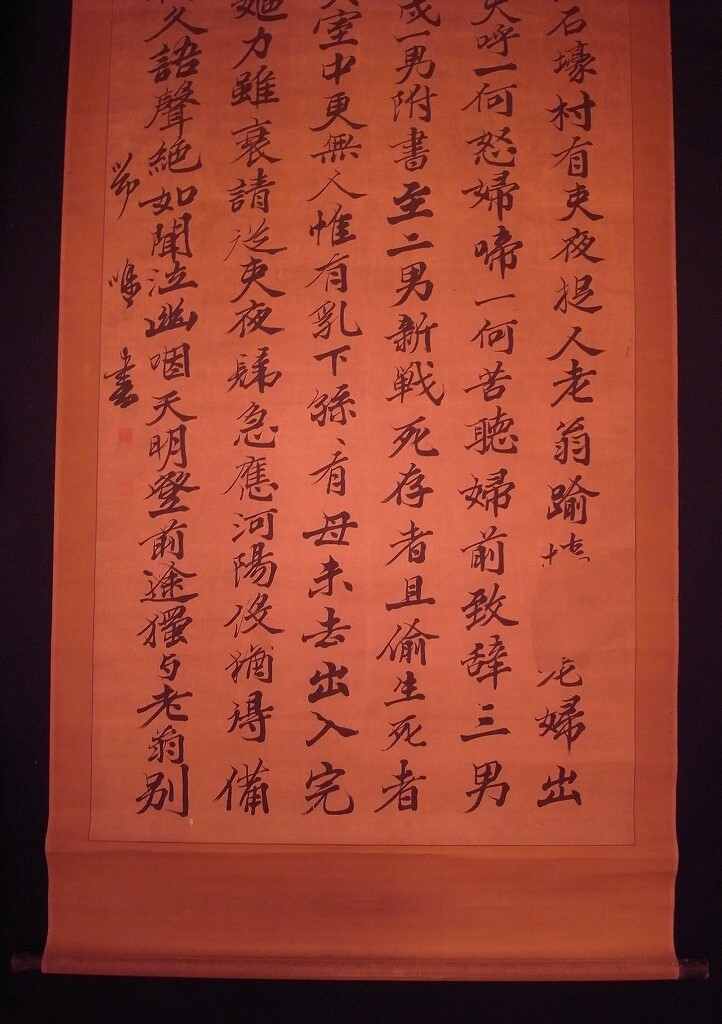 石壕村有吏夜捉人老翁踰婦出
吏呼一何怒婦啼一何苦聽婦前致辞三男
戍一男附書至二男新戦死存者且偷生死者
矣室中更無人惟有乳下孫〻有母未去出入完
嫗力雖衰請從吏夜歸急應河陽役猶得備
久語聲絶如聞泣幽咽天明登前途獨与老翁別
書